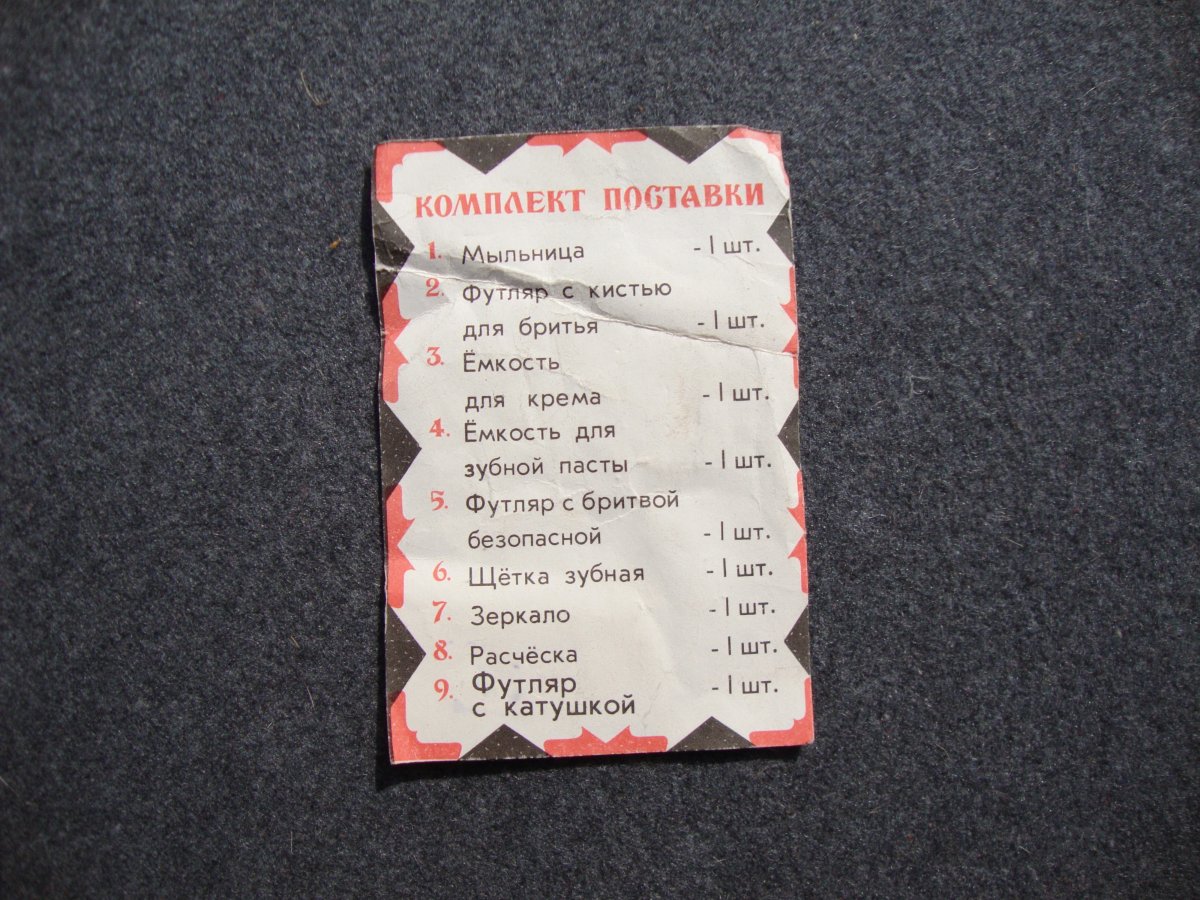 КОМПЛЕКТ ПОСТАВКИ
1. Мыльница - 1 шт.
2. Футляр с кистью
для бритья - 1 шт.
3. Ёмкость
для крема - 1 шт.
4. Ёмкость для
зубной пасты - 1 шт.
5. Футляр с бритвой
безопасной - 1 шт.
6. Щётка зубная - 1 шт.
7. Зеркало - 1 шт.
8. Расчёска - 1 шт.
9. Футляр - 1 шт.
с катушкой